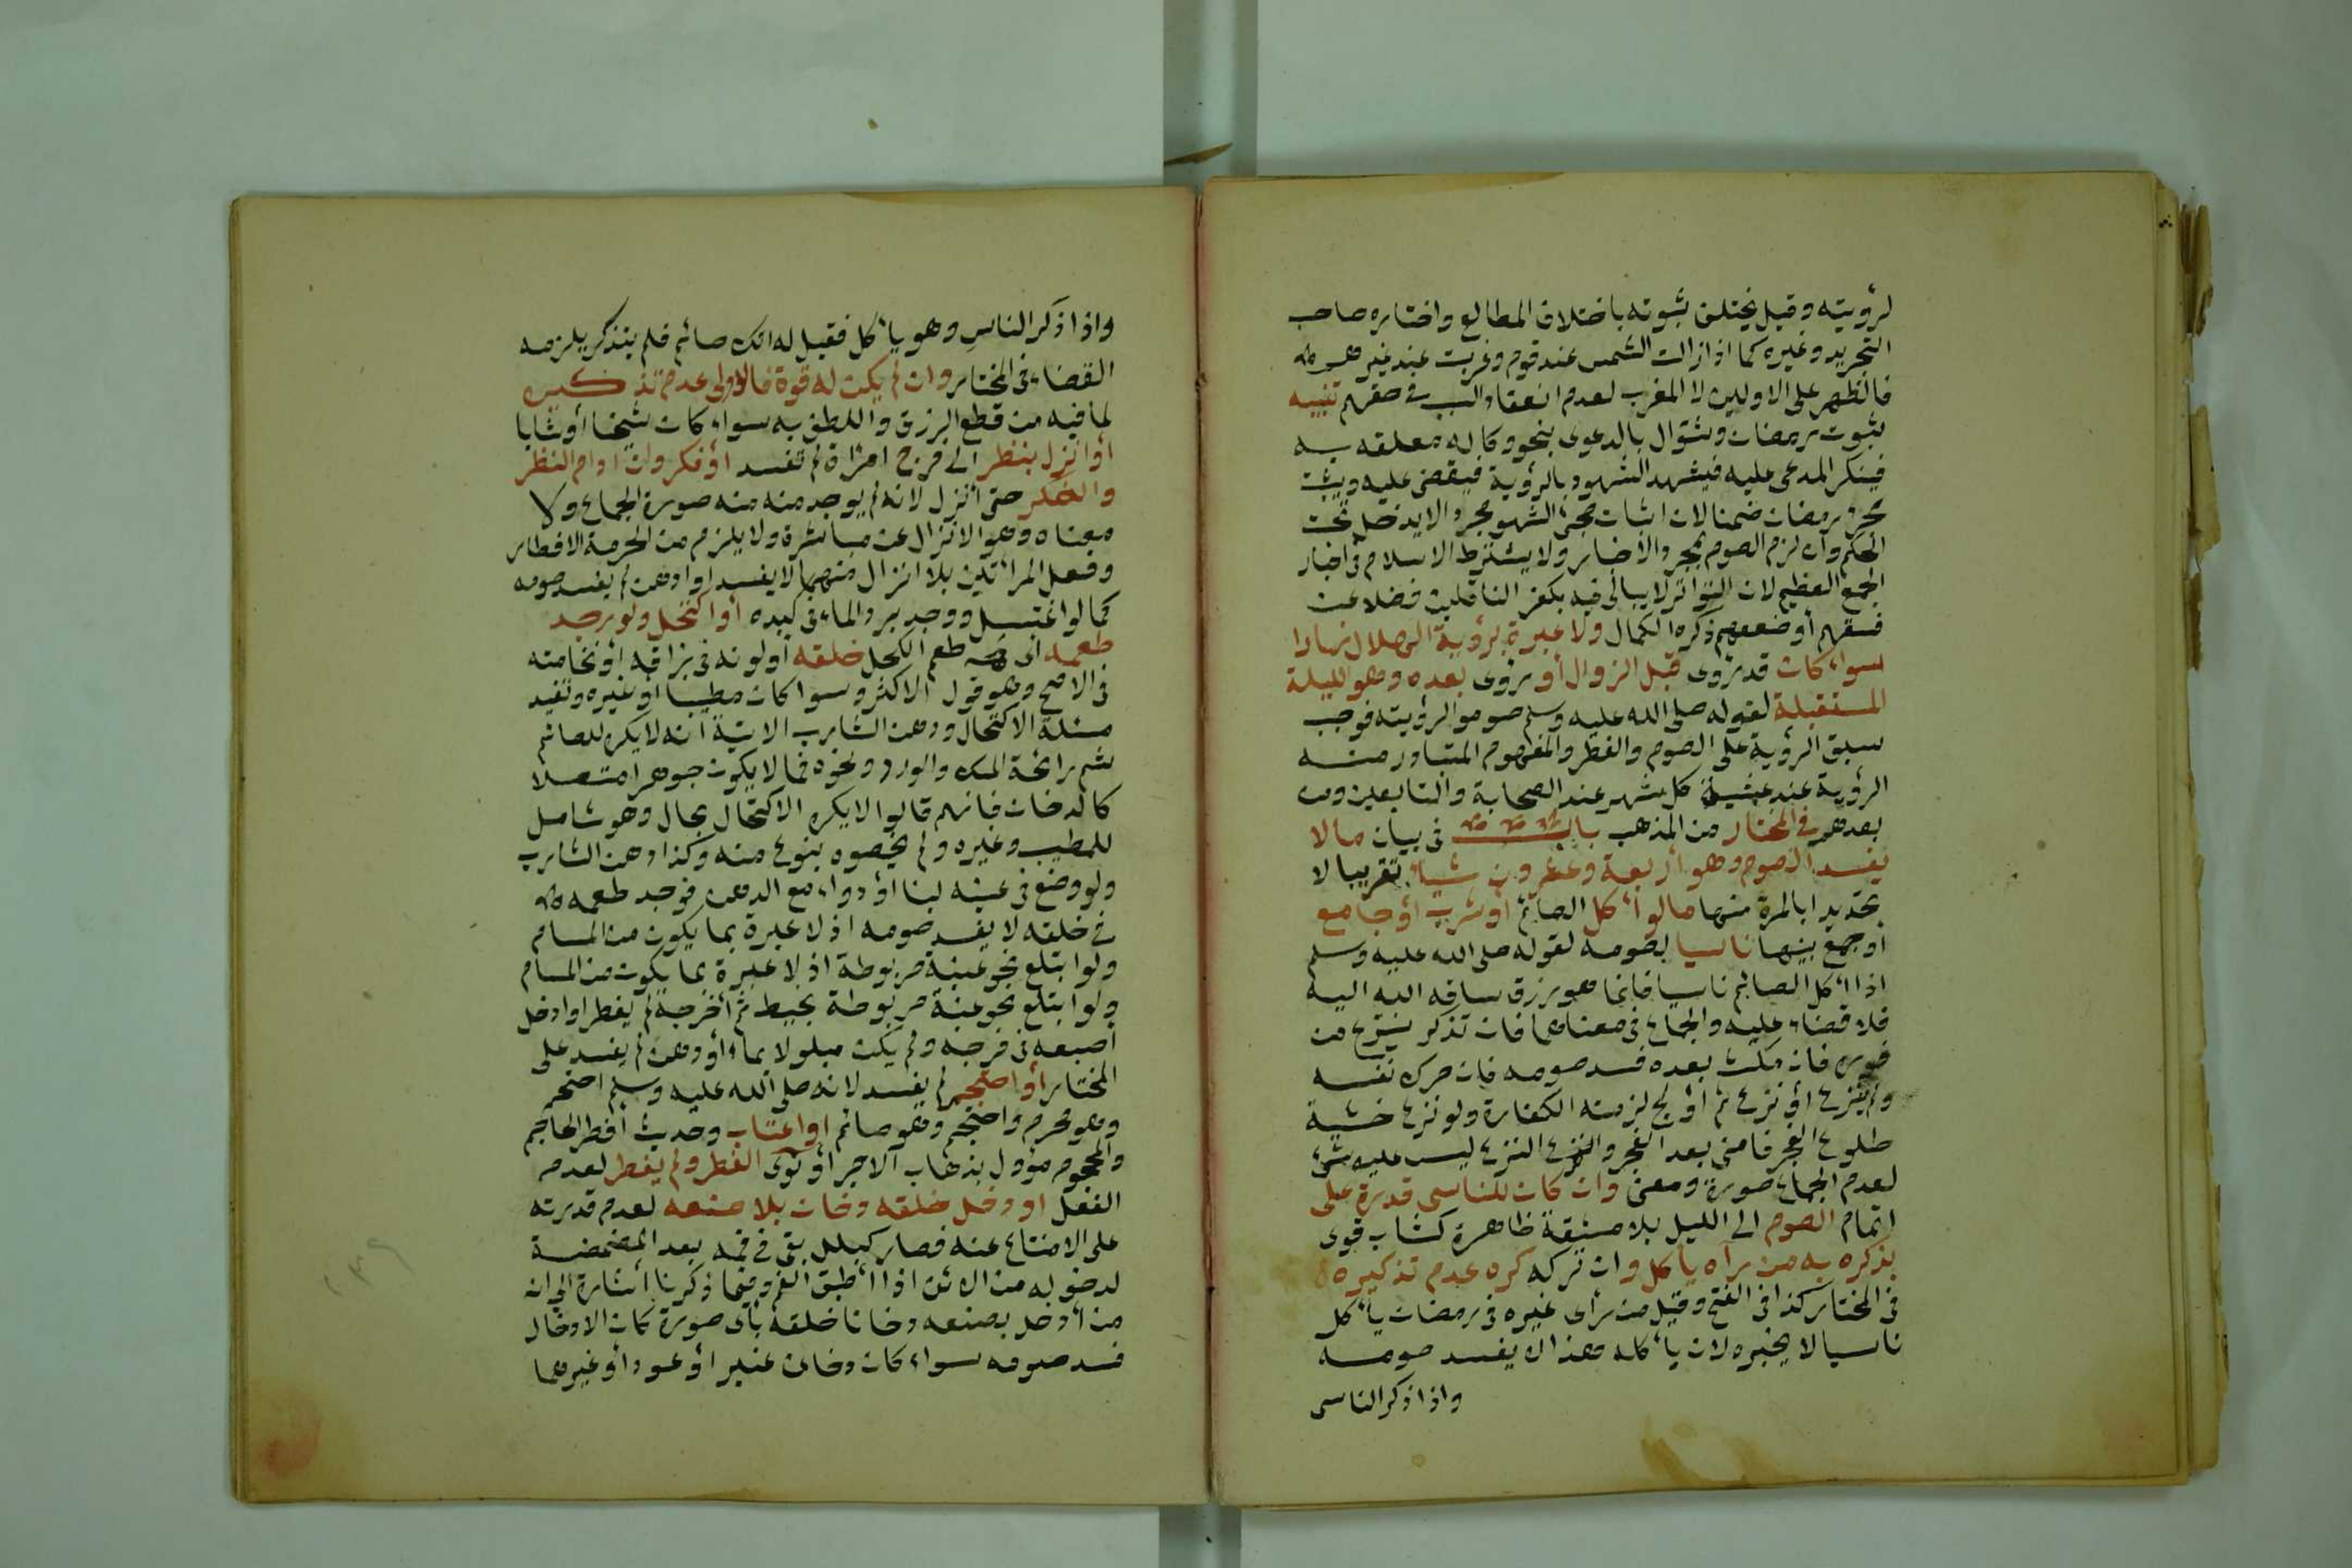 لرؤيته وقيل يختلف ثبوته باختلاف المطالع واختاره صاحب
التجريد وغيره كما اذا زالت الشمس عند قوم وغربت عند غيرهم
فالظهر على الاولين لا المغرب لعدم انعقاد السبب في حقهم تنبيه
ثبوت رمضان وشوال بالدعوى بنحو وكاله معلقه به
فينكر المدعى عليه فيشهد الشهود بالرؤية فيقضى عليه ويثبت
مجئ رمضان ضمنا لان اثبات مجئ الشهر مجردا لا يدخل تحت
الحكم وان لزم الصوم بمجرد الاخبار ولا يشترط الاسلام في اخبار
الجمع العظيم لان التواتر لا يبالى فيه بكفر الناقلين فضلا عن
فسقهم أو ضعفهم ذكره الكمال ولا عبرة برؤية الهلال نهارا
سواء كان قد رؤى قبل الزوال أو رؤى بعده وهو الليلة
المستقبلة لقوله صلى الله عليه وسلم صوموا لرؤيته فوجب
سبق الرؤية على الصوم والفطر والمفهوم المتبادر منه
الرؤية عند عشية كل شهر عند الصحابة والتابعين ومن
بعدهم في المختار من المذهب باب في بيان مالا
يفسد الصوم وهو أربعة وعشرون شيأ تقريبا لا
تحديدا بالمرة منها مالو أكل الصائم أو شرب أو جامع
أو جمع بينها ناسيا لصومه لقوله صلى الله عليه وسلم
اذا أكل الصائم ناسيا فانما هو رزق ساقه الله اليه
فلا قضاء عليه والجماع في معناهما فان تذكر ينزع من
فوره فان مكث بعده فسد صومه فان حرك نفسه
ولم ينزع أو نزع ثم أولج لزمته الكفارة ولو نزع خشية
طلوع الفجر فامنى بعد الفجر والنزع النزع ليس عليه شئ
لعدم الجماع صورة ومعنى وان كان للناسى قدرة على
اتمام الصوم الى الليل بلا مشقة ظاهرة كشاب قوى
يذكره به من رآه يأكل وان تركه كره عدم تذكيره
في المختار كذا في الفتح وقيل من رأى غيره في رمضان يأكل
ناسيا لا يخبره لان يأكله هذا لا يفسد صومه
واذا ذكر الناسى
واذا ذكر الناس وهو يأكل فقيل له انك صائم فلم يتذكر يلزمه
القضاء في المختار وان لم يكن له قوة فالاولى عدم تذكيره
لما فيه من قطع الرزق واللطف به سواء كان شيخا أو شابا
أو انزل بنظر الى فرج امرأة لم تفسد أو فكر وان ادام النظر
والفكر حتى أنزل لانه لم يوجد منه منه صورة الجماع ولا
معناه وهو الانزال عن مباشرة ولا يلزم من الحرمة الافطار
وفعل المرأتين بلا انزال منهما لا يفسد أو ادهن لم يفسد صومه
كما لو اغتسل ووجد برد الماء في كبده أو اكتحل ولو وجد
طعمه اى طعم الكحل حلقه أو لونه في بزاقه أو نخامته
في الاصح وهو قول الاكثر وسوا كان مطيبا أو غيره وتفيد
مسئلة الاكتحال ودهن الشارب الآتية انه لا يكره للصائم
شم رائحة المسك والورد ونحوه مما لا يكون جوهرا متصلا
كالدخان فانهم قالوا لا يكره الاكتحال بحال وهو شامل
للمطيب وغيره ولم يخصوه بنوع منه وكذا دهن الشارب
ولو وضع في عينه لبنا أو دواء مع الدهن فوجد طعمه
في حلقه لا يفسد صومه اذ لا عبرة بما يكون من المسام
ولو ابتلع نحو عنبة مربوطة اذ لا عبرة بما يكون من المسام
ولو ابتلع نحو عنبة مربوطة بخيط ثم أخرجه لم يفطر أو ادخل
أصبعه في فرجه ولم يكن مبلولا بماء أو دهن لم يفسد على
المختار أو احتجم لم يفسد لانه صلى الله عليه وسلم احتجم
وهو محرم واحتجم وهو صائم أو اغتاب وحديث افطر الحاجم
والمحجوم مؤول بذهاب الاجر أو نوى الفطر ولم يفطر لعدم
الفعل أو دخل حلقه دخان بلا صنعه لعدم قدرته
على الامتناع عنه فصار كبلل بقى في فمه بعد المضمضة
لدخوله من الانف اذا أطبق الفم وفيما ذكرنا اشارة الى انه
من أدخل بصنعه دخانا حلقه بأى صورة كان الادخال
فسد صومه سواء كان دخان عنبر أو عود أو غيرهما